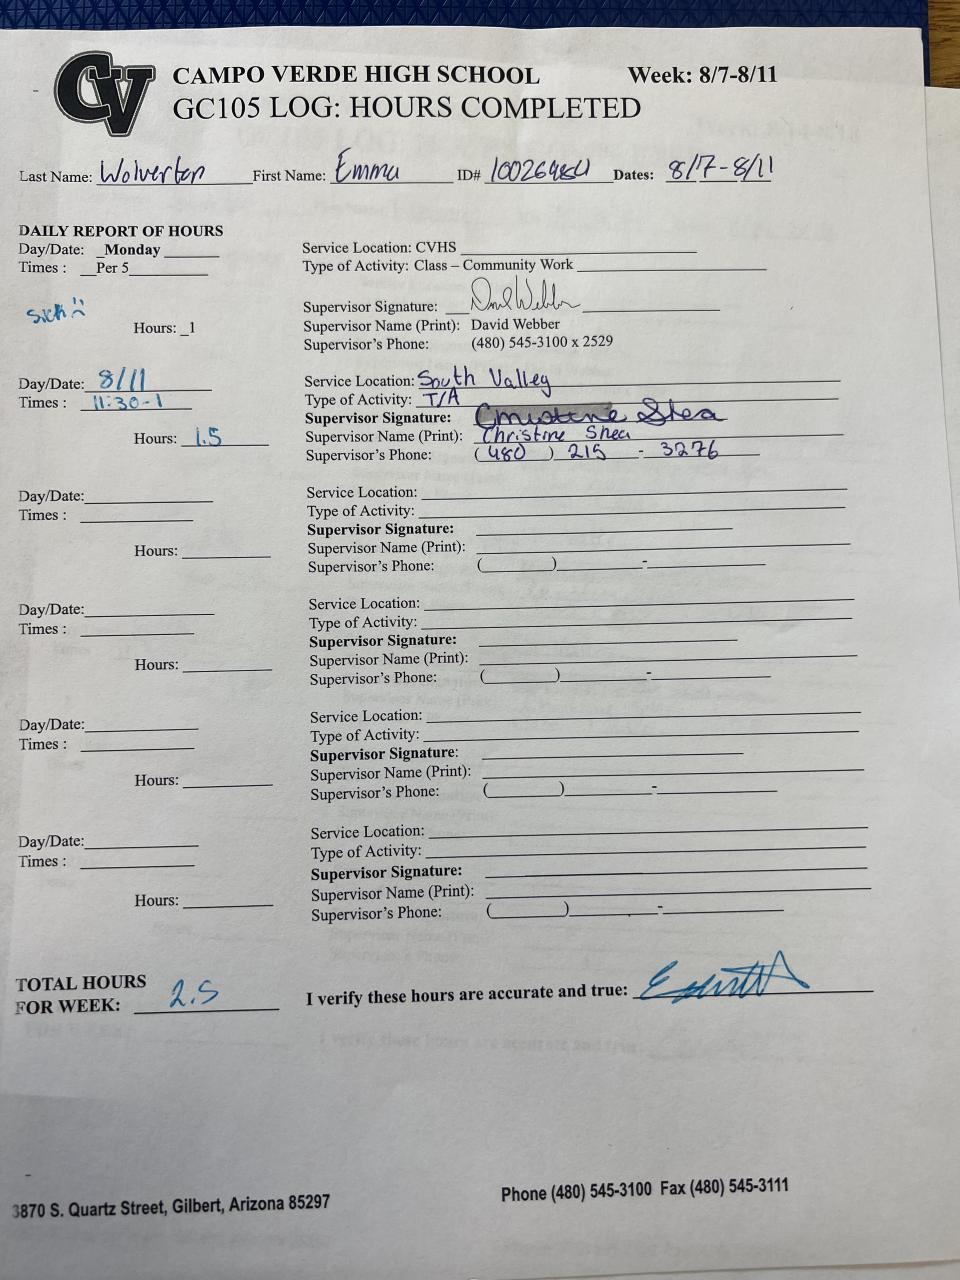 CV CAMPO VERDE HIGH SCHOOL Week: 8/7-8/11
GC105 LOG: HOURS COMPLETED
Last Name: Wolverton First Name: Emma ID# Dates: 8/7-8/11
DAILY REPORT OF HOURS
Day/Date: _Monday Service Location: CVHS
Times : Per 5 Type of Activity: Class – Community Work
sick Supervisor Signature: David Webber
Hours: _1 Supervisor Name (Print): David Webber
Supervisor's Phone: (480) 545-3100 x 2529
Day/Date: 8/11 Service Location: South Valley
Times : 11:30-1 Type of Activity: T/A
Supervisor Signature: Christine Shea
Hours: 1.5 Supervisor Name (Print): Christine Shea
Supervisor's Phone: (480) 215 - 3276
Day/Date: Service Location:
Times : Type of Activity:
Supervisor Signature:
Hours: Supervisor Name (Print):
Supervisor's Phone: ( ) -
Day/Date: Service Location:
Times : Type of Activity:
Supervisor Signature:
Hours: Supervisor Name (Print):
Supervisor's Phone: ( ) -
Day/Date: Service Location:
Times : Type of Activity:
Supervisor Signature:
Hours: Supervisor Name (Print):
Supervisor's Phone: ( ) -
Day/Date: Service Location:
Times : Type of Activity:
Supervisor Signature:
Hours: Supervisor Name (Print):
Supervisor's Phone: ( ) -
TOTAL HOURS
FOR WEEK: 2.5 I verify these hours are accurate and true:
3870 S. Quartz Street, Gilbert, Arizona 85297 Phone (480) 545-3100 Fax (480) 545-3111